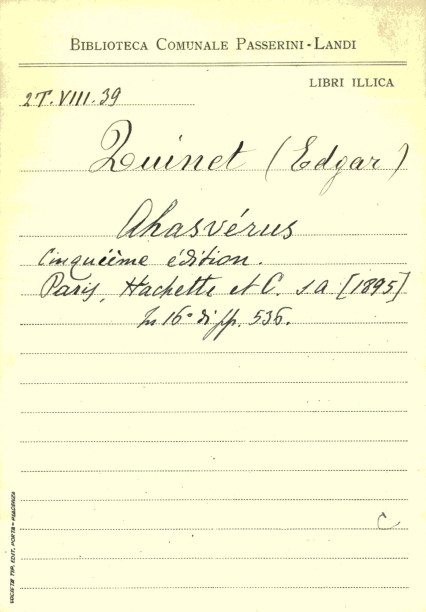 BIBLIOTECA COMUNALE PASSERINI-LANDI
LIBRI ILLICA
2T.VIII.39
Quinet (Edgar)
Ahasvérus
Cinquième édition.
Paris, Hachette et C. s.a [1895]
In 16° di pp. 536.
C
SOCIETÀ TIP. EDIT. PORTA-PIACENZA